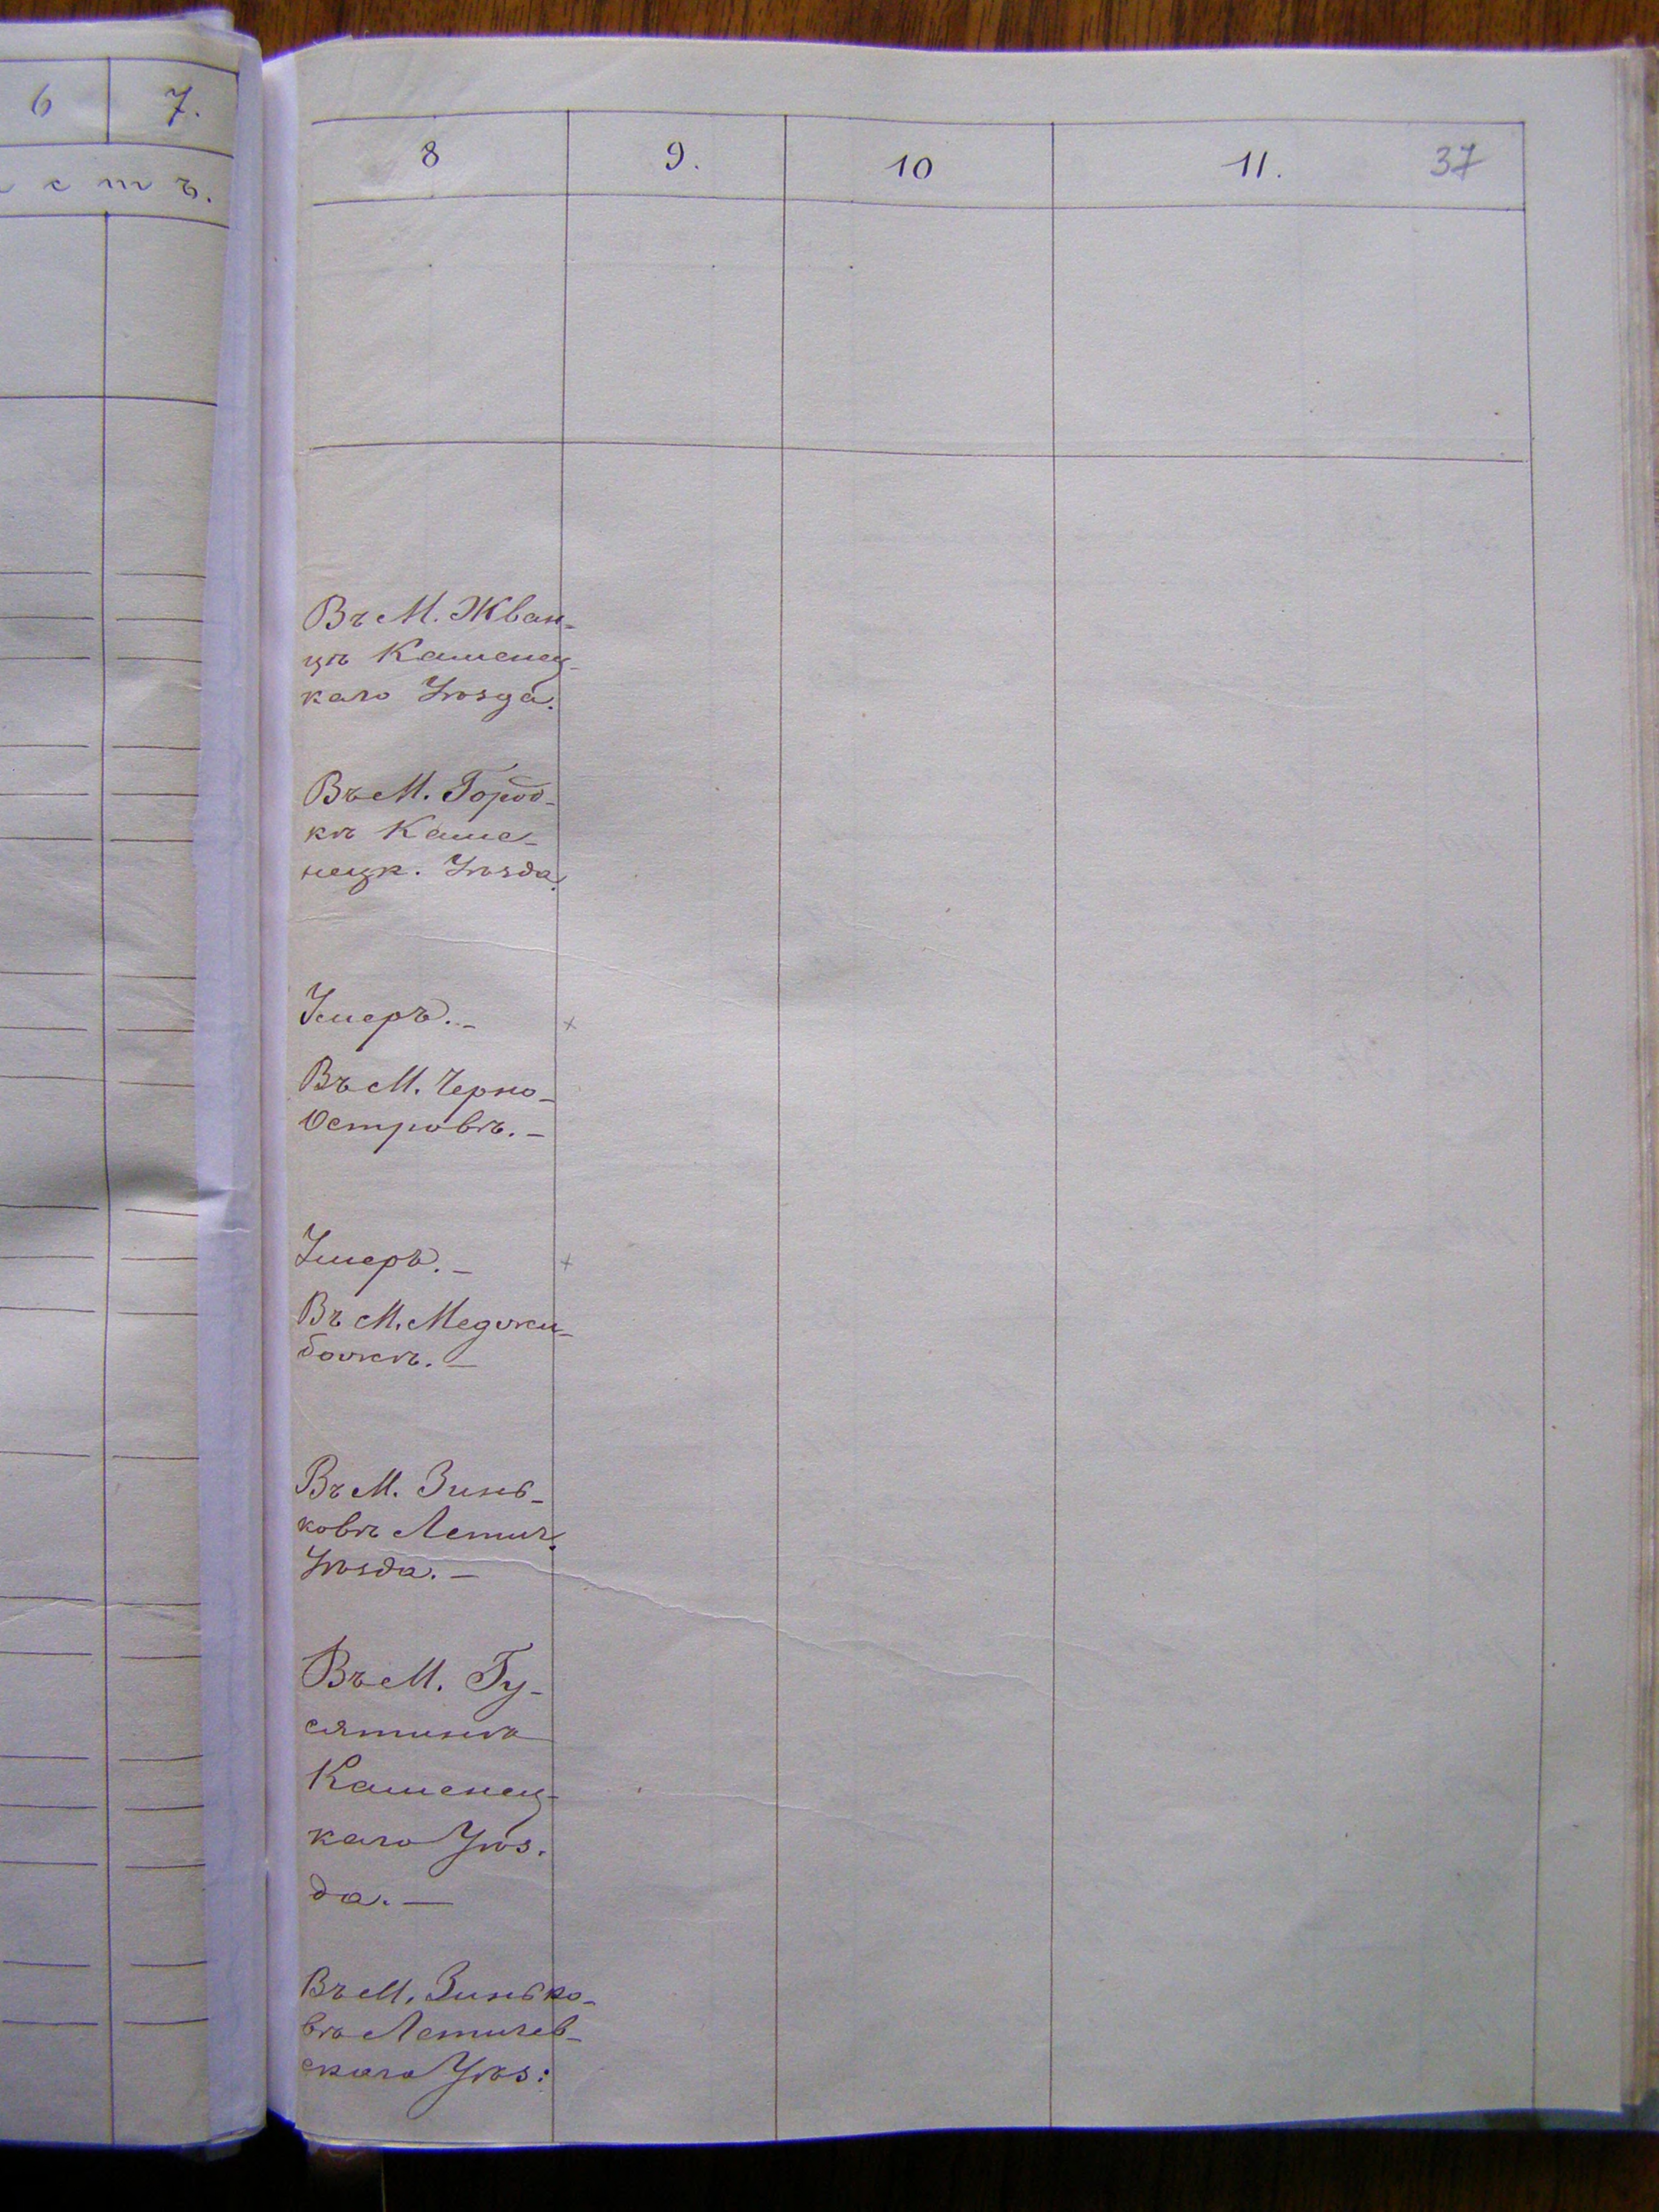 6 7.
с т ъ.
8 9. 10 11. 37
Въ М. Жван-
цѣ Каменец-
каго Уѣзда.
Въ М. Город-
кѣ Каме-
нецк. Уѣзда.
Умеръ. -
Въ М. Черно-
Островѣ. -
Умеръ. -
Въ М. Меджи-
божѣ. -
Въ М. Зинь-
ковѣ Летич.
Уѣзда. -
Въ М. Гу-
сятинѣ
Каменец-
каго Уѣз.
да. -
Въ М. Зинько-
вѣ Летичев-
скаго Уѣз: